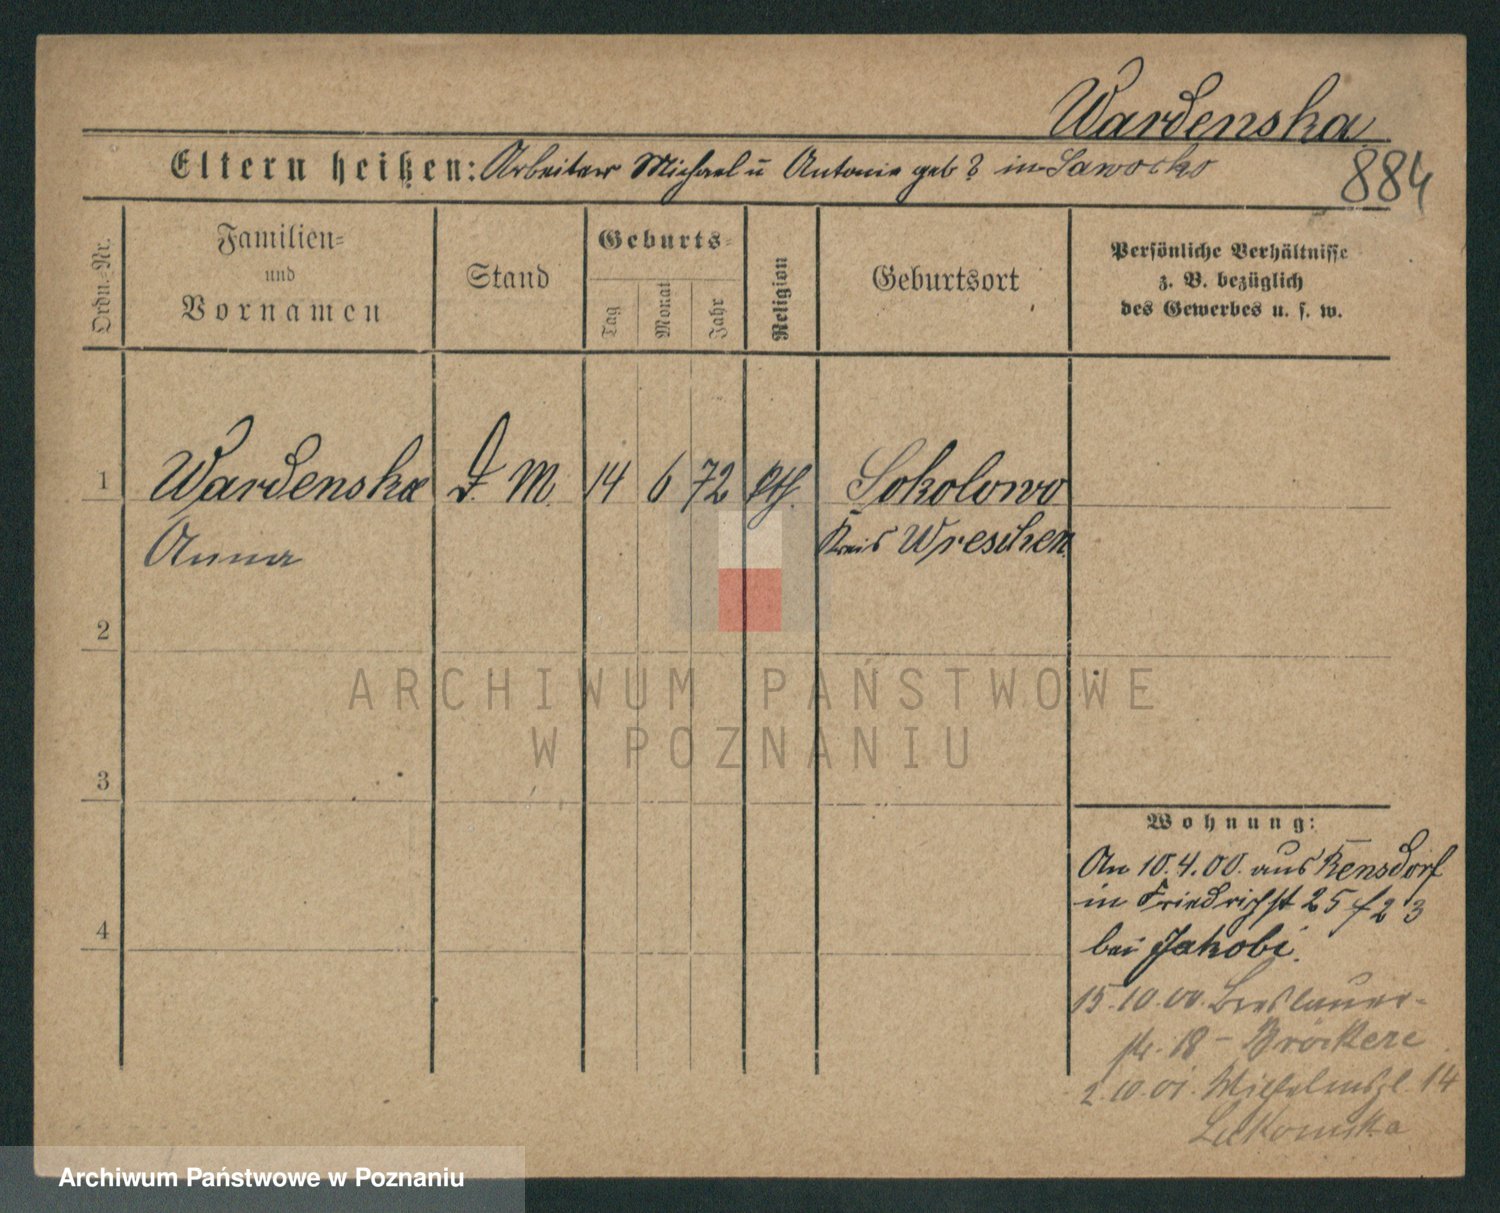 Wardenska
Eltern heißen: Arbeiter Michael u Antonie geb ? in
884
Ordn.-Nr.
Familien-
und
Vornamen
Stand
Geburts-
Tag
Monat
Jahr
Religion
Geburtsort
Persönliche Verhältnisse
z. B. bezüglich
des Gewerbes u. s. w.
1 Wardenska D. M. 14 6 72 kth. Sokolowo
Anna Kreis Wreschen
2
3
4
ARCHIWUM PAŃSTWOWE
W POZNANIU
Wohnung:
An 10.4.00. aus Rensdorf
in Friedrichst 25 f 2 3
bei Jakobi.
15.10.00. Breslauer-
str. 18 - Bröckere
2.10.01. Wilhelmspl. 14
Archiwum Państwowe w Poznaniu